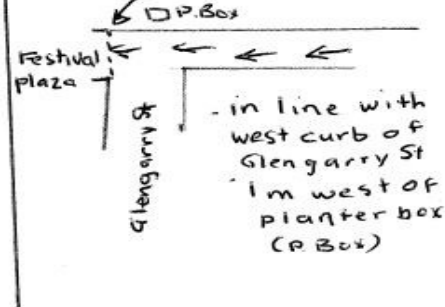 P.Box
Festival
plaza
Glengarry St
- in line with
west curb of
Glengarry St
- 1m west of
planter box
(P. Box)